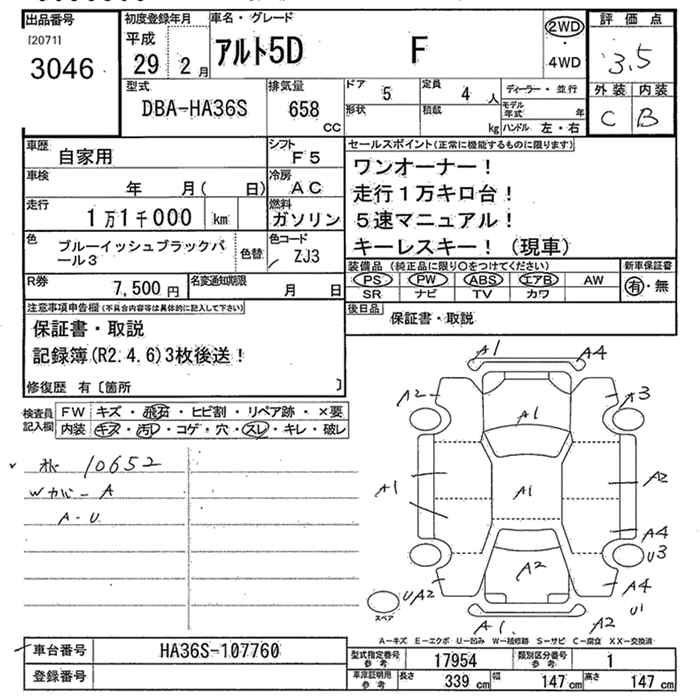 出品番号 初度登録年月 車名・グレード 評価点
[2071] 平成 アルト5D F 2WD
3046 29 2月 ・ 4WD 3.5
型式 排気量 ドア 5 定員 4 人 ディーラー・並行 外装 内装
DBA-HA36S 658 CC 形状 積載 kg モデル年式 年 C B
ハンドル 左・右
車歴 自家用 シフト F5 セールスポイント(正常に機能するものに限ります)
車検 年 月( 日) 冷房 AC ワンオーナー!
走行 1万1千000 km 燃料 ガソリン 走行1万キロ台!
色 ブルーイッシュブラックパール3 色替 色コード ZJ3 5速マニュアル!
キーレスキー!(現車)
R券 7,500円 名変通知期限 月 日 装備品(純正品に限り○をつけてください) 新車保証書
PS PW ABS エアB AW 有・無
SR ナビ TV カワ
注意事項申告欄(不具合内容等は具体的に記入して下さい) 後日品 保証書・取説
保証書・取説
記録簿(R2.4.6)3枚後送!
修復歴 有〔箇所 〕
検査員記入欄 FW キズ・飛石・ヒビ割・リペア跡・×要
内装 キズ・汚レ・コゲ・穴・スレ・キレ・破レ
10652
Wカバー A
A-U
A1 A4
A2 A3
A1
A1 A1 A2
A4
U3
UA2 A2 A4
U1
スペア A1. A2
A-キズ E-エクボ U-凹み W-補修跡 S-サビ C-腐食 XX-交換済
車台番号 HA36S-107760 型式指定番号 参考 17954 類別区分番号 参考 1
登録番号 車庫証明用 参考 長さ 339 cm 幅 147 cm 高さ 147 cm